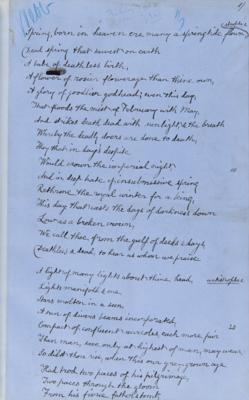 strophe 1
Spring, born in heaven ere many a springtide flown,
Dead spring that sawest on earth
A babe of deathless birth,
A flower of rosier flowerage than thine own,
A glory of goodlier godhead; even this day,
That floods the mist of February with May,
And strikes death dead with sunlight, & the breath
Whereby the deadly doers are done to death,
They that in day's despite
Would crown the imperial night,
And in deep hate of insubmissive spring
Rethrone the royal winter for a king,
This day that casts the days of darkness down
Low as a broken crown,
We call thee from the gulf of deeds & days,
Deathless & dead, to hear us whom we praise.
antistrophe 1
A light of many lights about thine head,
Lights manifold & one,
Stars molten in a sun,
A sun of divers beams incorporated,
Compact of confluent aureoles, each more fair
Than man, save only at highest of man, may wear,
So didst thou rise, when this our grey-grown age
Had trod two paces of his pilgrimage,
Two paces through the gloom
From his fierce father's tomb,